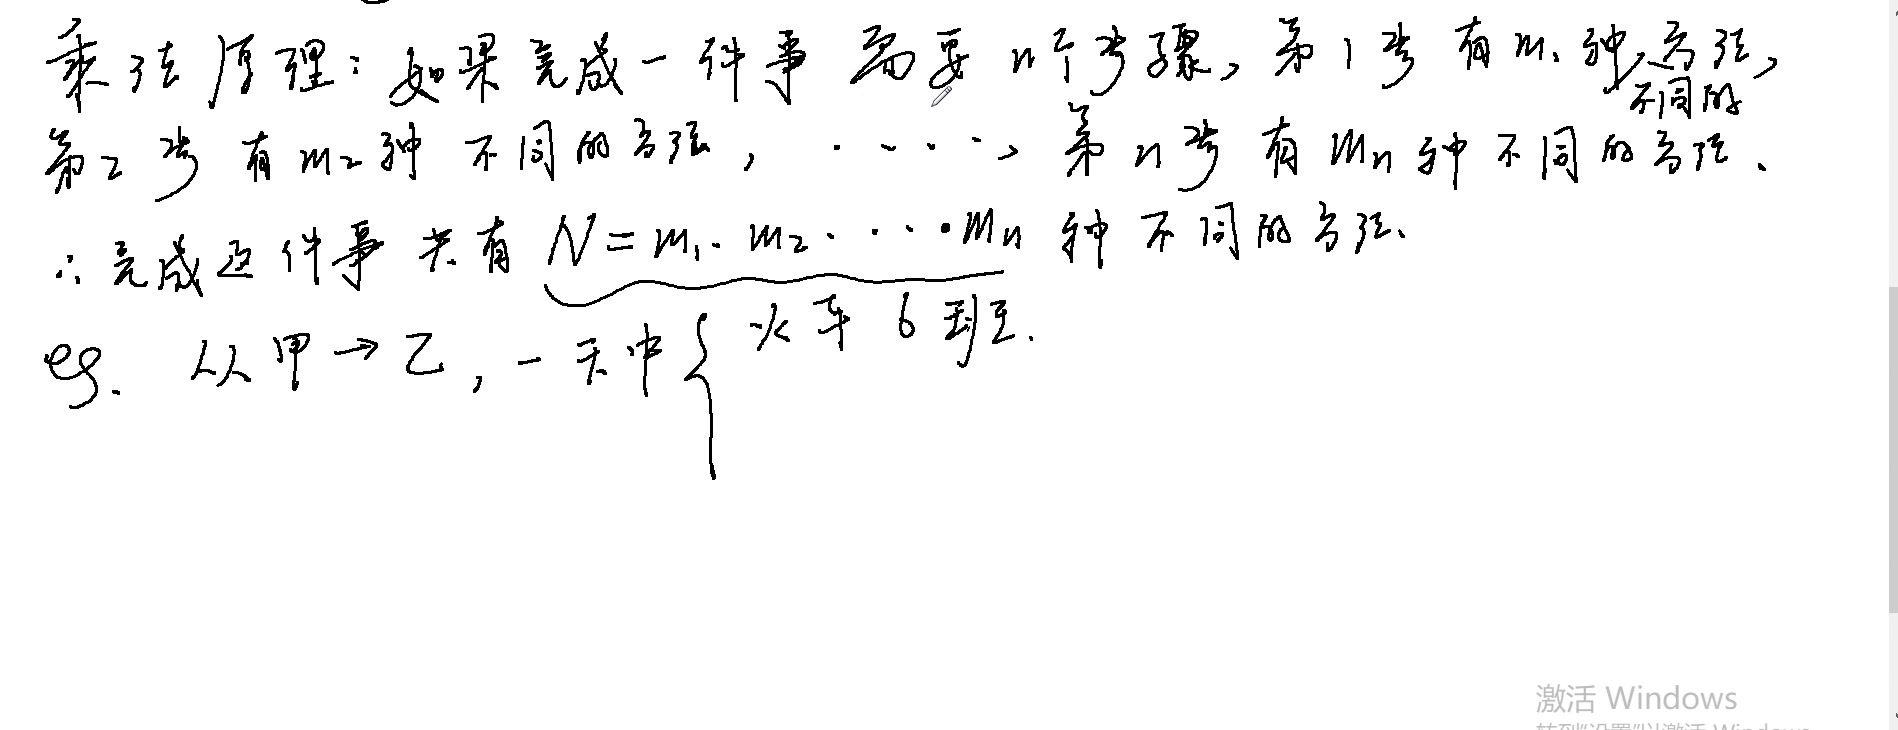 乘法原理：如果完成一件事需要n个步骤，第1步有m₁种不同的方法，
第2步有m₂种不同的方法，·····，第n步有mₙ种不同的方法、
∴完成这件事共有 N=m₁·m₂·····mₙ 种不同的方法、
eg. 从甲→乙，一天中{火车6班.
激活 Windows
转到"设置"以激活 Windows